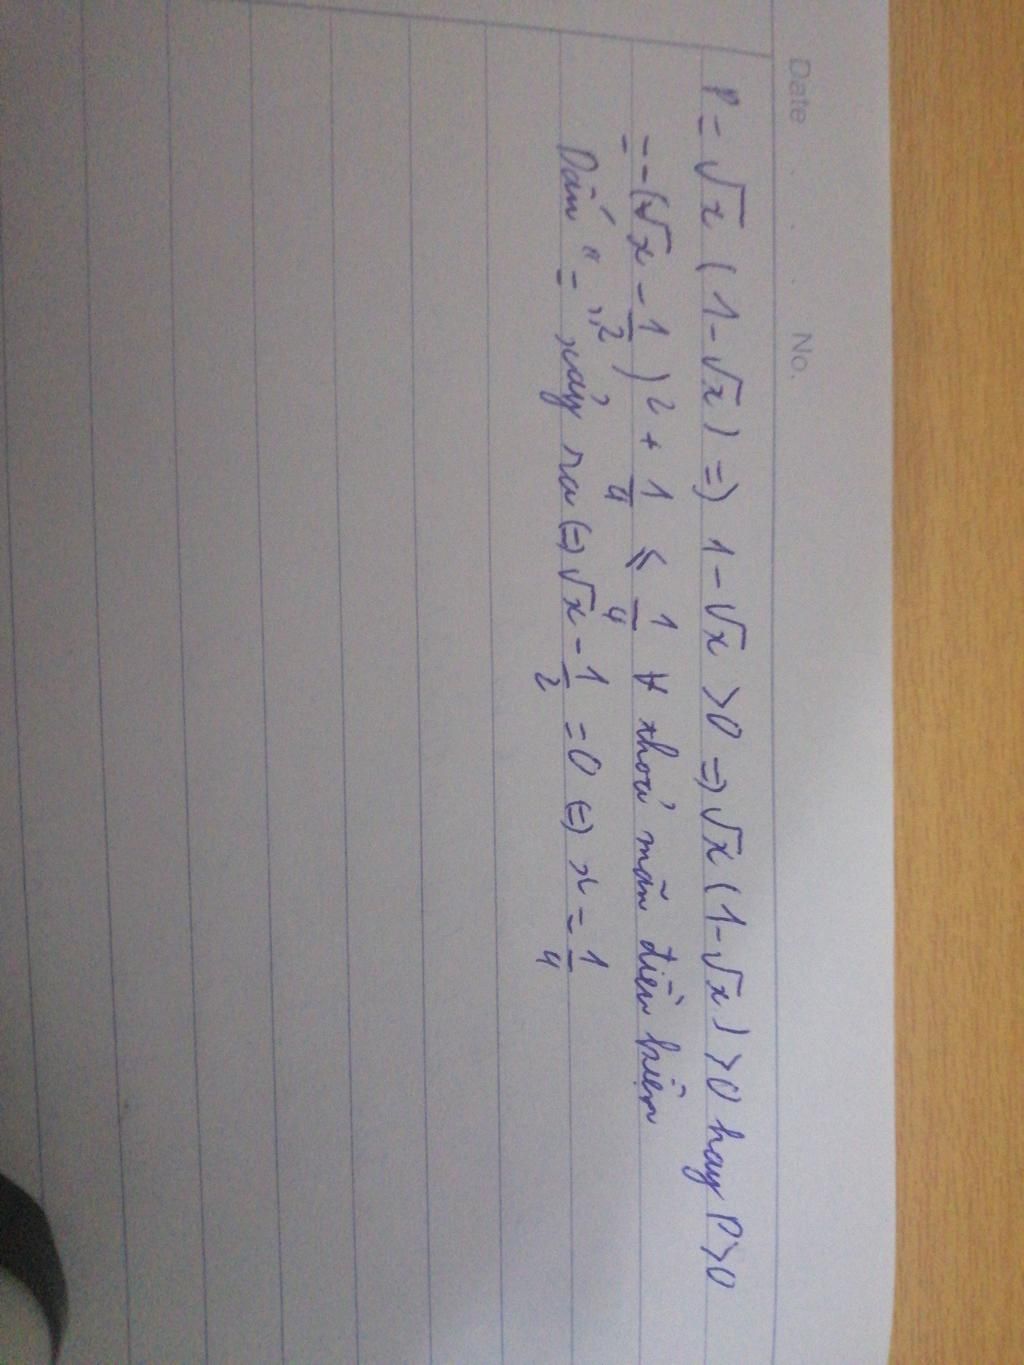 Date No.
P = √x (1-√x) => 1-√x >0 => √x (1-√x) >0 hay P>0
= -(√x - 1/2)² + 1/4 ≤ 1/4 ∀ x thoả mãn điều kiện
Dấu "=" xảy ra (=) √x - 1/2 = 0 (=) x = 1/4